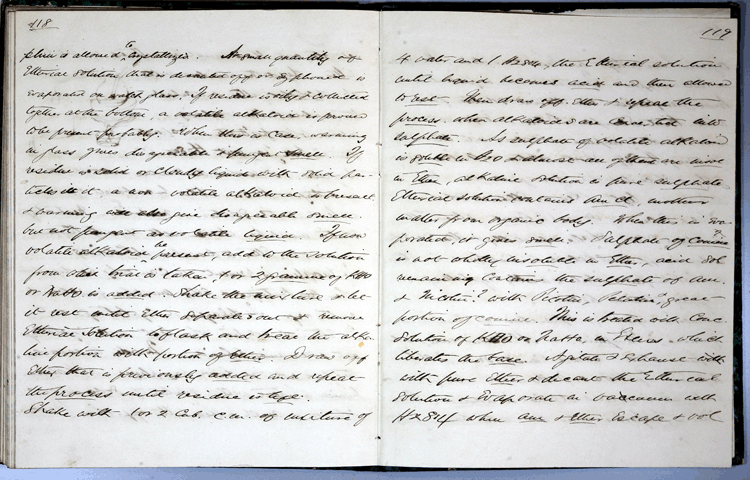 118
is allowed to crystallize. A small quantity of
Etherial solution that is decanted off or syphoned is
evaporated on watch glass. If residue is oily & collected
together at the bottom, a volatile alkaloid is proved
to be present probably. When this is case, warming
in glass gives disagreeable & pungent smell. If
residue is solid or cloudy liquid with solid par-
ticles in it, a non volatile alkaloid is present
& warming it also give disagreeable smell
but not pungent as volatile liquid. If non
volatile alkaloid be present, add to the solution
from which this is taken, 1 or 2 gramme of KHO
or NaHO is added. Shake the mixture & let
it rest until Ether separates out & remove
Etherial solution to flask and treat the alka-
line portion with portion of Ether. Draw off
Ether that is previously added and repeat
the process until residue
Shake with 1 or 2 cub. c.m. of mixture of
119
4 water and 1 H2SO4, the Etherial solution
until liquid becomes acid and then allowed
to rest. Then draw off Ether & repeat the
process, when alkaloids are into
sulphate. As sulphate of volatile alkaloid
is soluble in H2O & almost all of them are insol
in Ether, alkaloid solution is pure sulphate
Etherial solution contains another
matter from organic body. When this is eva-
porated it gives smell. Sulphate of conine
is not wholly insoluble in Ether, acid sol
remaining contains the sulphate of am.
& Nicotin? with great
portion of conine. This is treated with conc
solution of KHO or NaHO, in excess which
liberates the base. Agitate & exhaust with
with pure Ether & decant the Etherial
solution & evaporate in vaccuum with
H2SO4 when am & Ether escape & vol